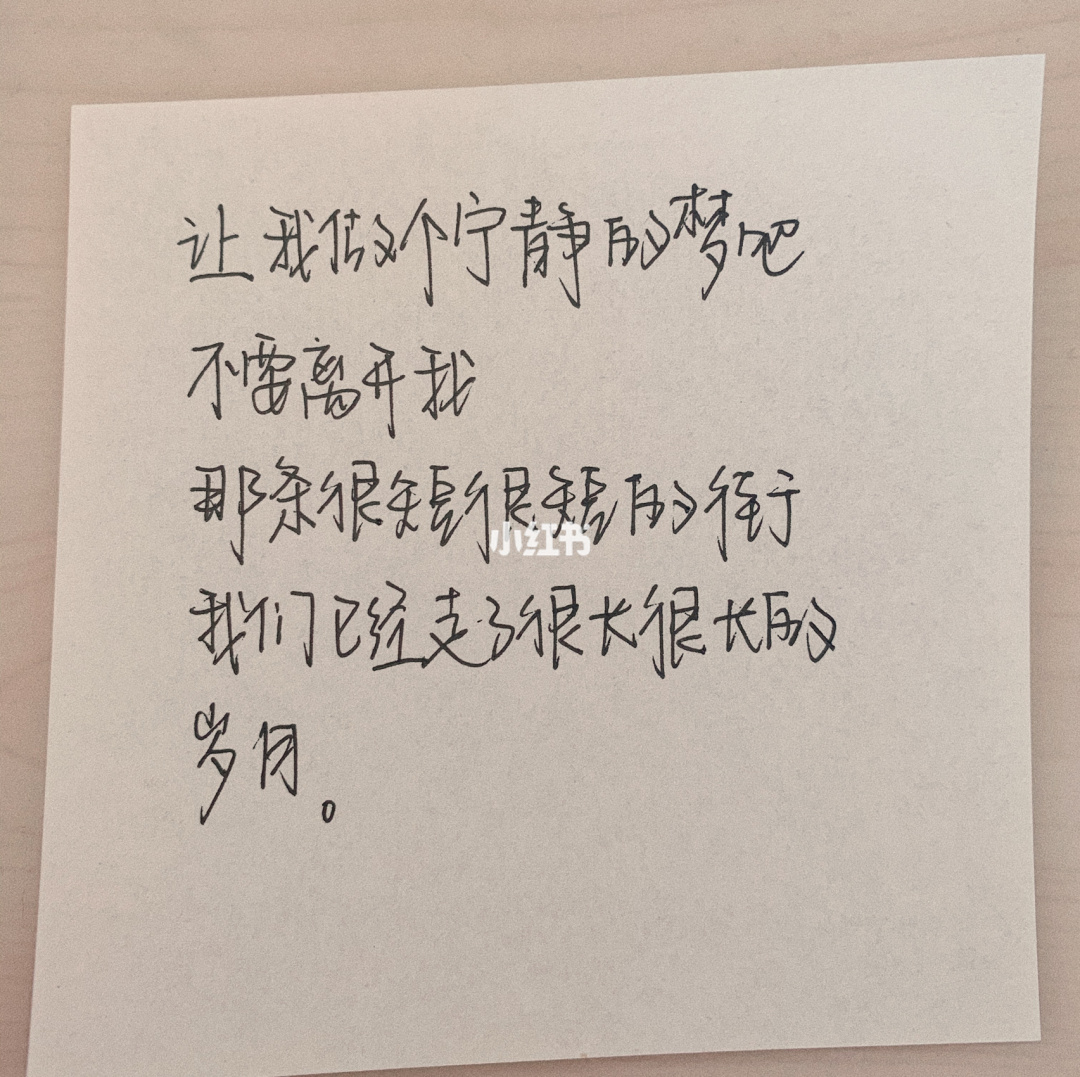 让我做个宁静的梦吧
不要离开我
那条很短很短的街
我们已经走了很长很长的
岁月。
小红书